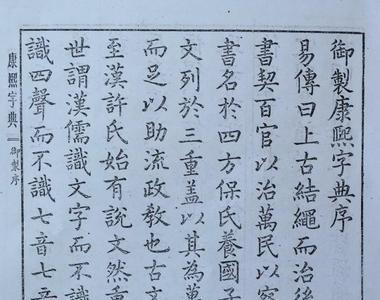 御製康熙字典序
易傳曰上古結繩而治後
書契百官以治萬民以察
書名於四方保氏養國子
文列於三重盖以其為萬
而足以助流政教也古文
至漢許氏始有說文然重
世謂漢儒識文字而不識
識四聲而不識七音七音
康熙字典 御製序